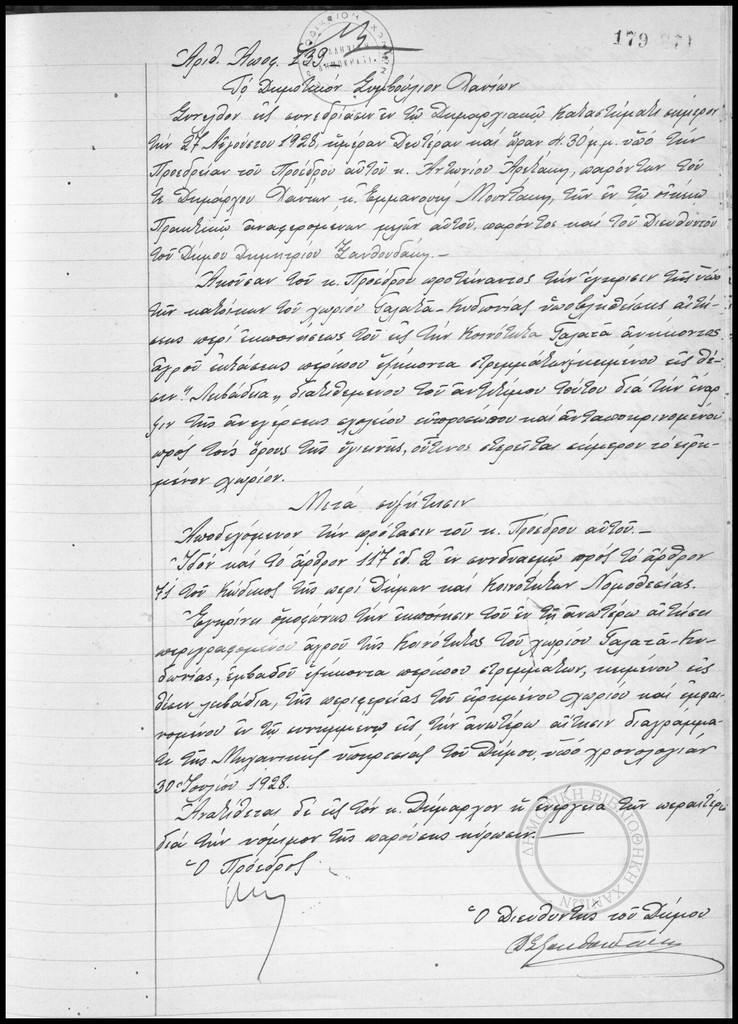 179 271
Ἀριθ. Ἀποφ. 239
Τὸ Δημοτικὸν Συμβούλιον Χανίων
Συνελθὸν εἰς συνεδρίασιν ἐν τῷ Δημαρχιακῷ Καταστήματι σήμερον
τὴν 27 Αὐγούστου 1928, ἡμέραν Δευτέραν καὶ ὥραν 30 μ.μ. ὑπὸ τὴν
Προεδρείαν τοῦ Προέδρου αὐτοῦ κ. Ἀντωνίου παρόντων τοῦ
τε Δημάρχου Χανίων κ. Ἐμμανουὴλ Μουντάκη, τῶν ἐν τῷ οἰκείῳ
Πρακτικῷ ἀναφερομένων μελῶν αὐτοῦ, παρόντος καὶ τοῦ Διευθυντοῦ
τοῦ Δήμου Δημητρίου Ξανθουδάκη.-
Ἀκοῦσαν τοῦ κ. Προέδρου προτείναντος τὴν ἔγκρισιν τῆς ὑπὸ
τῶν κατοίκων τοῦ χωρίου Γαλατᾶ-Κυδωνίας ὑποβληθείσης αἰτή-
σεως περὶ ἐκποιήσεως τοῦ εἰς τὴν Κοινότητα Γαλατᾶ ἀνήκοντος
ἀγροῦ ἐκτάσεως περίπου ἑξήκοντα στρεμμάτων, κειμένου εἰς θέ-
σιν "Λιβάδια", διατιθεμένου τοῦ ἀντιτίμου τούτου διὰ τὴν ἔναρ-
ξιν τῆς ἀνεγέρσεως σχολείου εὐπροσώπου καὶ ἀνταποκρινομένου
πρὸς τοὺς ὅρους τῆς ὑγιεινῆς, οὗτινος στερεῖται σήμερον τὸ εἰρη-
μένον χωρίον.
Μετὰ συζήτησιν
Ἀποδεχόμενον τὴν πρότασιν τοῦ κ. Προέδρου αὐτοῦ.-
Ἰδὸν καὶ τὸ ἄρθρον 117 ἐδ. 2 ἐν συνδυασμῷ πρὸς τὸ ἄρθρον
71 τοῦ Κώδικος τῆς περὶ Δήμων καὶ Κοινοτήτων Νομοθεσίας.
Ἐγκρίνει ὁμοφώνως τὴν ἐκποίησιν τοῦ ἐν τῇ ἀνωτέρω αἰτήσει
περιγραφομένου ἀγροῦ τῆς Κοινότητος τοῦ χωρίου Γαλατᾶ-Κυ-
δωνίας, ἐμβαδοῦ ἑξήκοντα περίπου στρεμμάτων, κειμένου εἰς
θέσιν Λιβάδια, τῆς περιφερείας τοῦ εἰρημένου χωρίου καὶ ἐμφαι-
νομένου ἐν τῷ συνημμένῳ εἰς τὴν ἀνωτέρω αἴτησιν διαγράμμα-
τι τῆς Μηχανικῆς ὑπηρεσίας τοῦ Δήμου, ὑπὸ χρονολογίαν
30 Ἰουλίου 1928.
Ἀνατίθεται δὲ εἰς τὸν κ. Δήμαρχον ἡ ἐνέργεια τῶν περαιτέρω
διὰ τὴν νόμιμον τῆς παρούσης κύρωσιν.
Ὁ Πρόεδρος
ΔΗΜΟΤΙΚΗ ΒΙΒΛΙΟΘΗΚΗ ΧΑΝΙΩΝ
Ὁ Διευθυντὴς τοῦ Δήμου
Δ Ξανθουδάκης